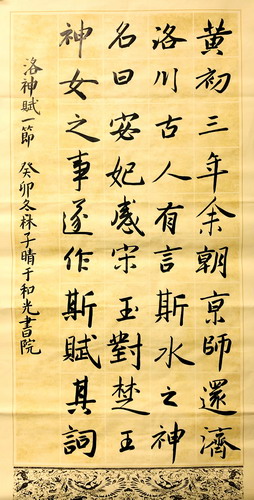 黄初三年余朝京師還濟
洛川古人有言斯水之神
名曰宓妃感宋玉對楚王
神女之事遂作斯賦其詞
洛神賦一節 癸卯冬株子晴于和光書院